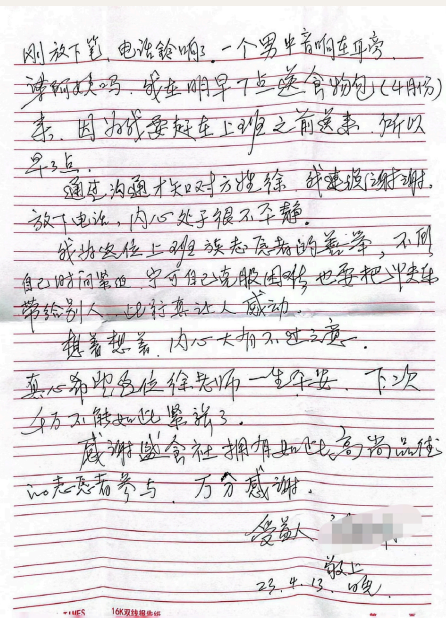 刚放下笔,电话铃响了.一个男中音响在耳旁
谏阿姨吗.我在明早7点送食物包(4月份)
来.因为我要赶在上班之前送来.所以
早了点.
通过沟通才知对方姓徐.我连说谢谢.
放下电话,内心处于很不平静.
我为这位上班族志愿者的善举,不
自己时间紧迫,宁可自己克服困难,也要把
带给别人.此行真让人感动.
想着想着.内心大有不过之意.
真心希望这位徐老师一生平安.下次
千万不能如此紧张了.
感谢盛食社拥有如此高尚品德
的志愿者参与.万分感谢.
受益人
敬上
23.4.13.晚
16K双线报告纸